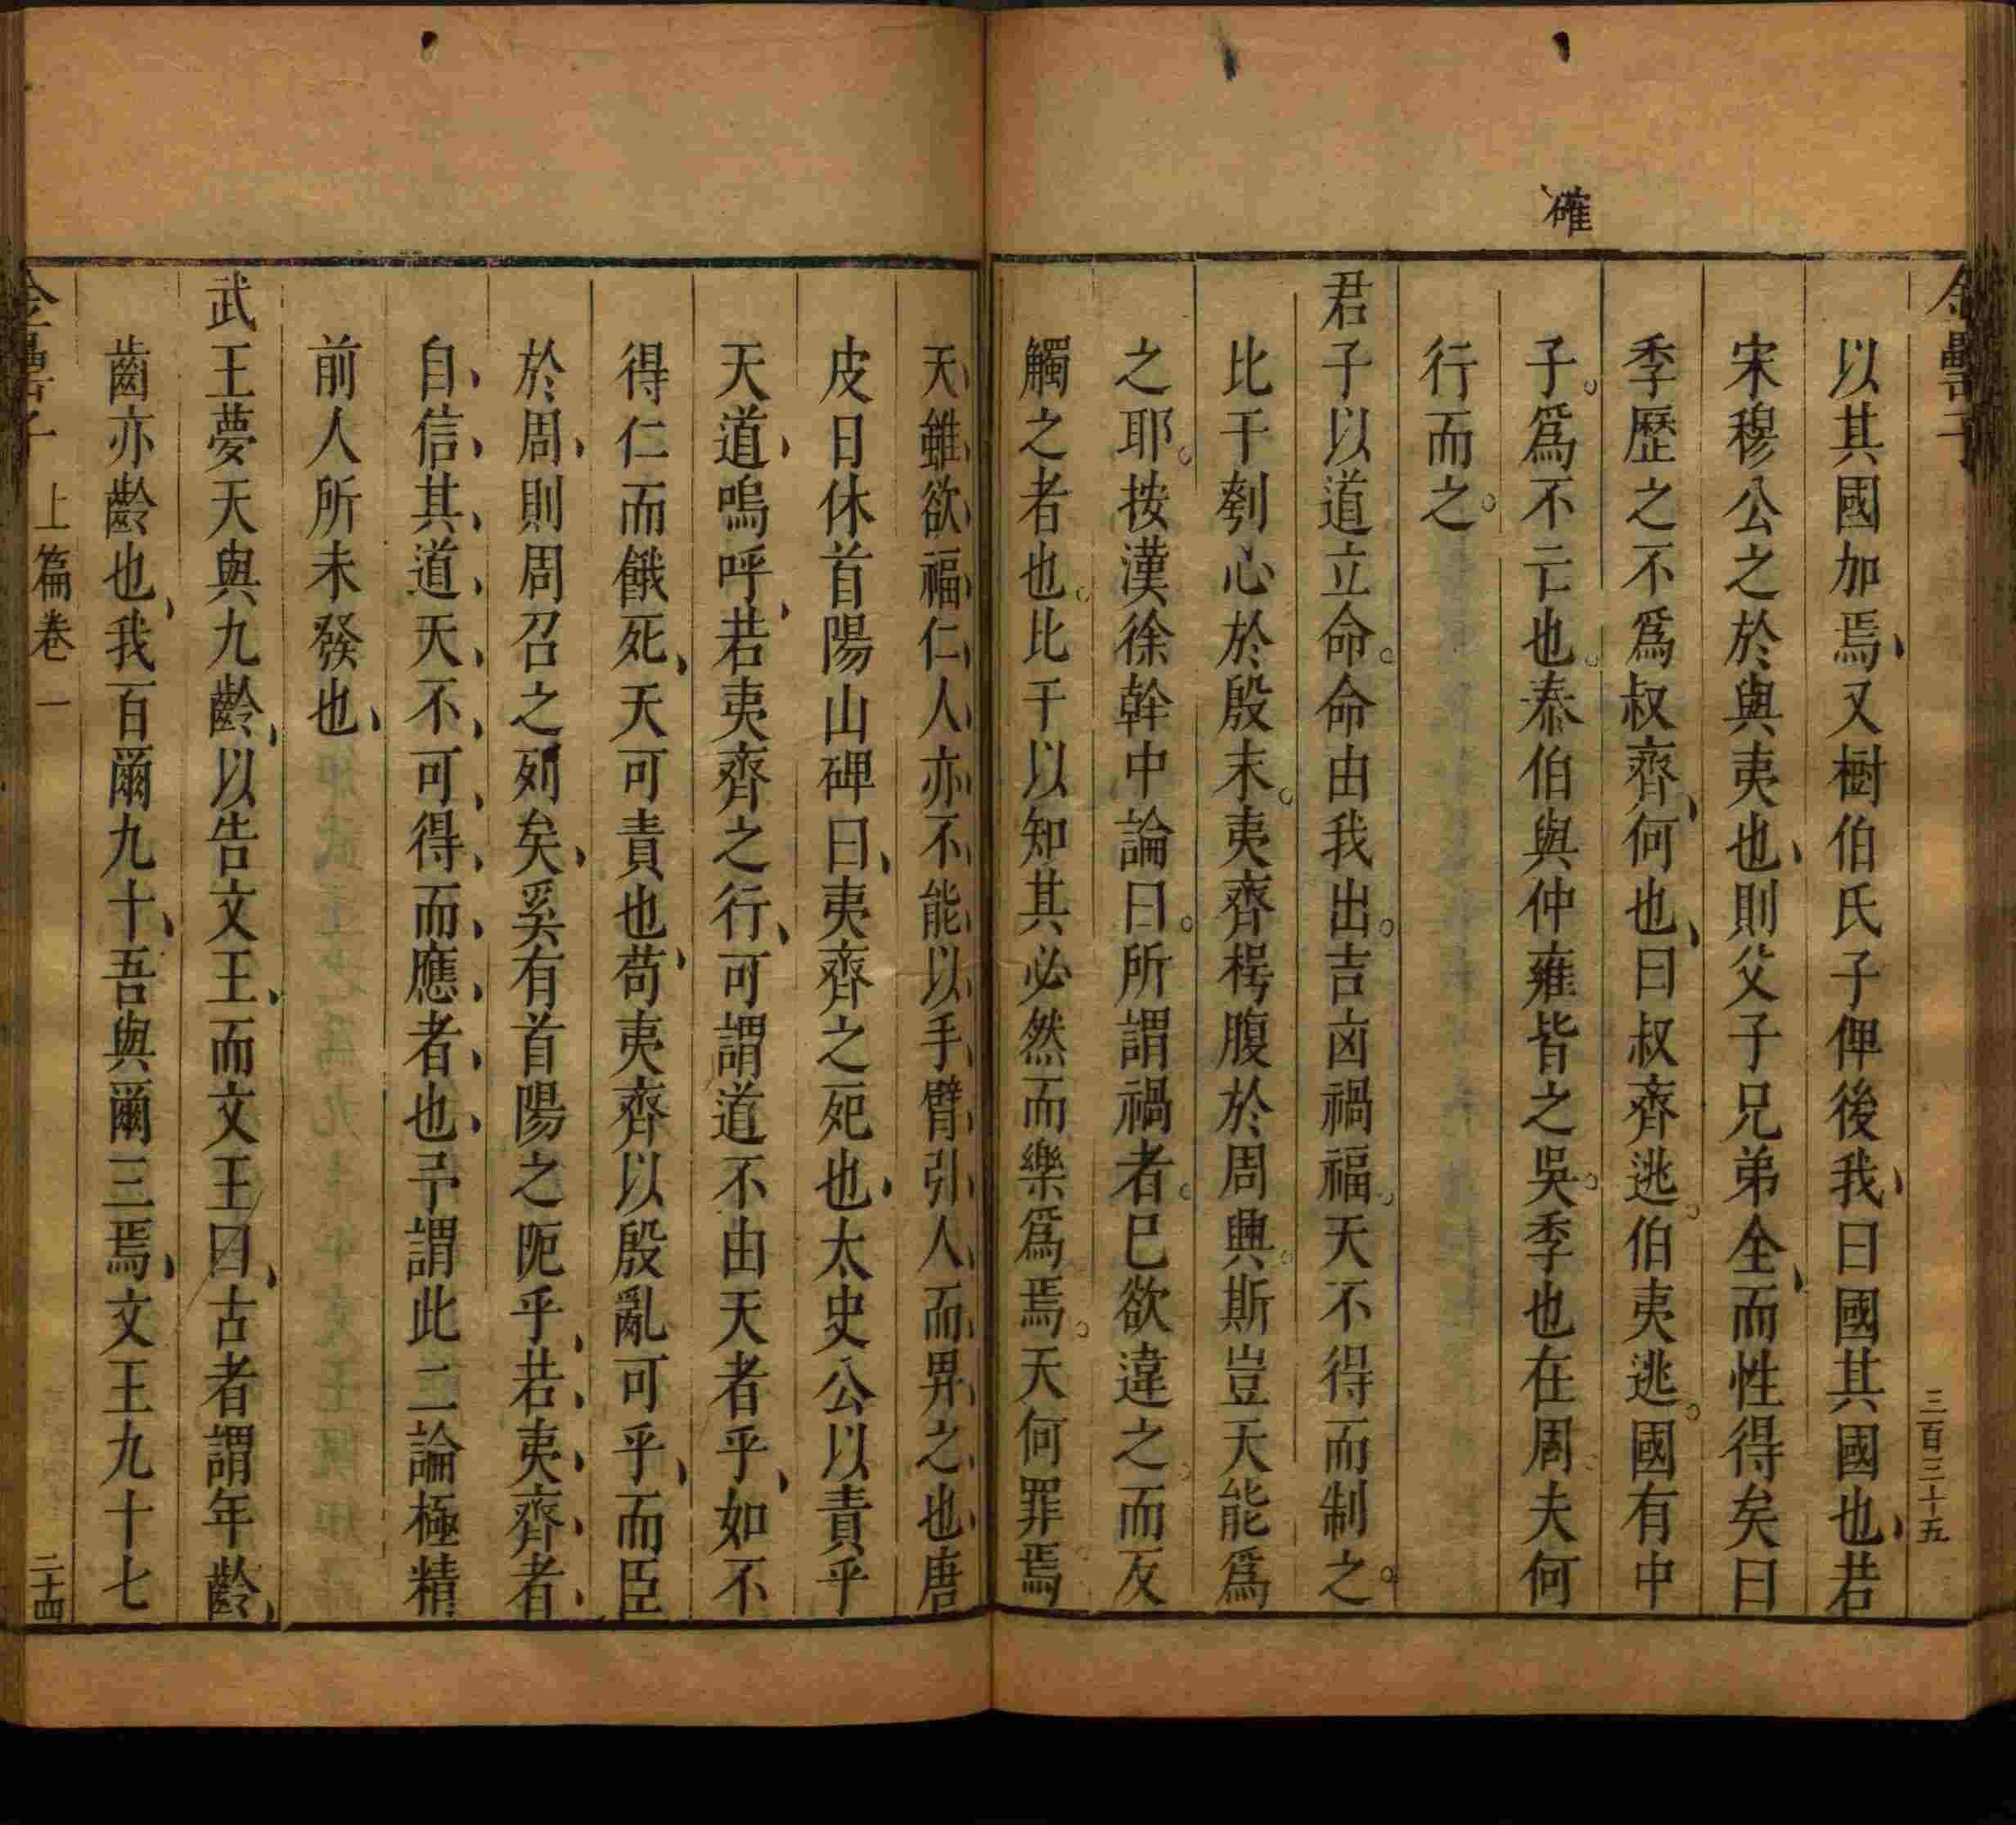 確
三百三十五
以其國加焉又樹伯氏子俾後我曰國其國也若
宋穆公之於與夷也則父子兄弟全而性得矣曰
季歷之不爲叔齊何也曰叔齊逃伯夷逃國有中
子爲不亡也泰伯與仲雍皆之吳季也在周夫何
行而之
君子以道立命命由我出吉凶禍福天不得而制之
比干刳心於殷末夷齊枵腹於周興斯豈天能爲
之耶按漢徐幹中論曰所謂禍者已欲違之而反
觸之者也比干以知其必然而樂爲焉天何罪焉
天雖欲福仁人亦不能以手臂引人而畀之也唐
皮日休首陽山碑曰夷齊之死也太史公以責乎
天道嗚呼若夷齊之行可謂道不由天者乎如不
得仁而餓死天可責也苟夷齊以殷亂可乎而臣
於周則周召之列矣奚有首陽之阨乎若夷齊者
自信其道天不可得而應者也予謂此二論極精
前人所未發也
武王夢天與九齡以告文王而文王曰古者謂年齡
齒亦齡也我百爾九十吾與爾三焉文王九十七
金罍子 上篇卷一 二十四